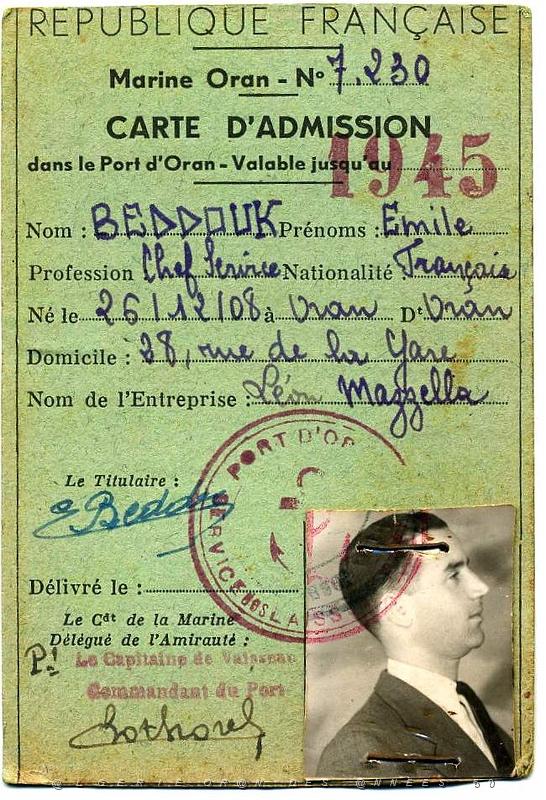 RÉPUBLIQUE FRANÇAISE
Marine Oran - N° 7.230
CARTE D'ADMISSION
dans le Port d'Oran - Valable jusqu'au 1945
Nom : BEDDOUK Prénoms : Emile
Profession Chef Service Nationalité Française
Né le 26/12/08 à Oran Dt Oran
Domicile : 28, rue de la Gare
Nom de l'Entreprise : Léon Mazzella
PORT D'OR
SERVICE DES LAISS
Le Titulaire :
E Beddouk
Délivré le :
Le Cdt de la Marine
Délégué de l'Amirauté :
P.!
Le Capitaine de Vaisseau
Commandant du Port